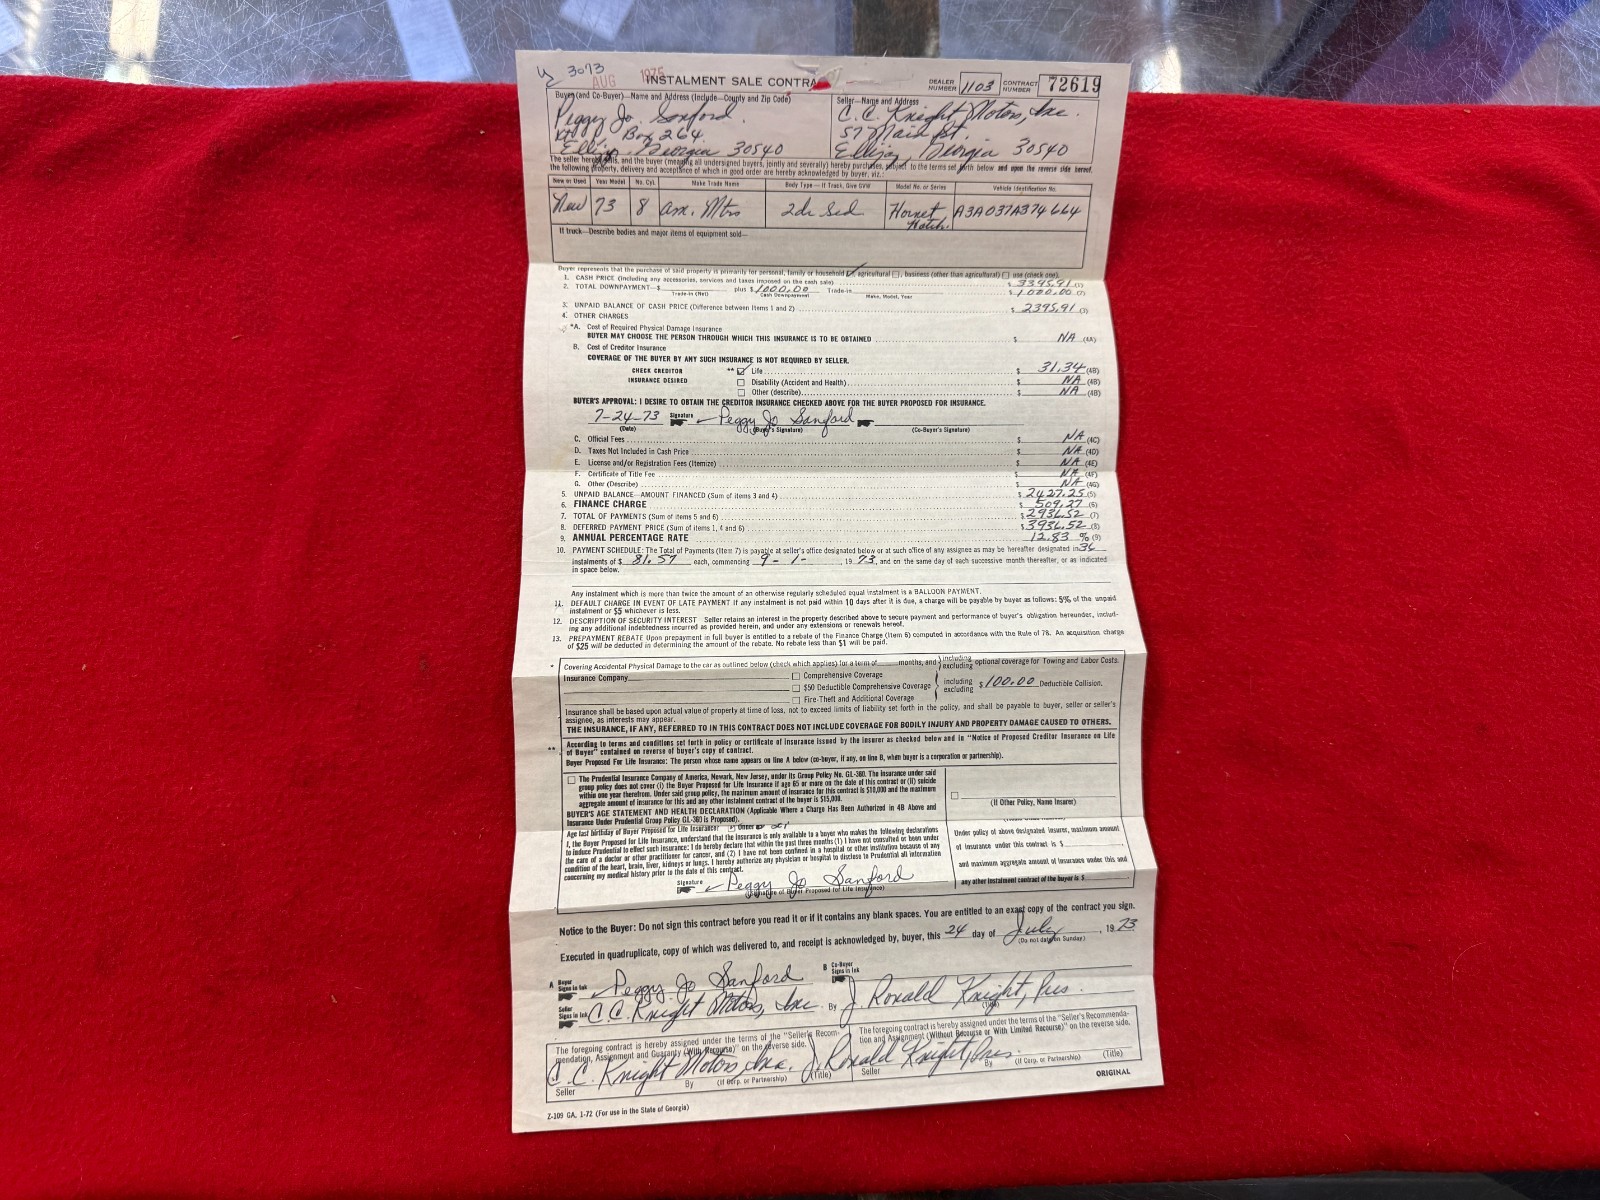 3073
AUG 1975
INSTALMENT SALE CONTRA
DEALER NUMBER 1103 CONTRACT NUMBER 72619
Buyer (and Co-Buyer)—Name and Address (Include County and Zip Code)
Seller—Name and Address
Peggy Jo. Sanford.
C. C. Knight Motors, Inc.
Box 264
57 Main St.
Ellijay, Georgia 30540
Ellijay, Georgia 30540
The seller hereby sells, and the buyer (meaning all undersigned buyers, jointly and severally) hereby purchases, subject to the terms set forth below and upon the reverse side hereof,
the following property, delivery and acceptance of which in good order are hereby acknowledged by buyer, viz.:
New or Used Year Model No. Cyl. Make Trade Name Body Type—If Truck, Give GVW Model No. or Series Vehicle Identification No.
New 73 8 Am. Mtrs 2dr Sed Hornet Hatch. A3A037A374664
If truck—Describe bodies and major items of equipment sold—
Buyer represents that the purchase of said property is primarily for personal, family or household ☑, agricultural ☐, business (other than agricultural) ☐ use (check one).
1. CASH PRICE (including any accessories, services and taxes imposed on the cash sale) $ 3395.91 (1)
2. TOTAL DOWNPAYMENT—$ plus $ 1000.00 Trade-in $ 1000.00 (2)
Trade-in (Net) Cash Downpayment Make, Model, Year
3. UNPAID BALANCE OF CASH PRICE (Difference between Items 1 and 2) $ 2395.91 (3)
4. OTHER CHARGES
*A. Cost of Required Physical Damage Insurance
BUYER MAY CHOOSE THE PERSON THROUGH WHICH THIS INSURANCE IS TO BE OBTAINED $ NA (4A)
B. Cost of Creditor Insurance
COVERAGE OF THE BUYER BY ANY SUCH INSURANCE IS NOT REQUIRED BY SELLER.
CHECK CREDITOR ** ☑ Life $ 31.34 (4B)
INSURANCE DESIRED ☐ Disability (Accident and Health) $ NA (4B)
☐ Other (describe) $ NA (4B)
BUYER'S APPROVAL: I DESIRE TO OBTAIN THE CREDITOR INSURANCE CHECKED ABOVE FOR THE BUYER PROPOSED FOR INSURANCE.
7-24-73 Signature Peggy Jo Sanford
(Date) (Buyer's Signature) (Co-Buyer's Signature)
C. Official Fees $ NA (4C)
D. Taxes Not Included in Cash Price $ NA (4D)
E. License and/or Registration Fees (Itemize) $ NA (4E)
F. Certificate of Title Fee $ NA (4F)
G. Other (Describe) $ NA (4G)
5. UNPAID BALANCE—AMOUNT FINANCED (Sum of items 3 and 4) $ 2427.25 (5)
6. FINANCE CHARGE $ 509.27 (6)
7. TOTAL OF PAYMENTS (Sum of items 5 and 6) $ 2936.52 (7)
8. DEFERRED PAYMENT PRICE (Sum of items 1, 4 and 6) $ 3936.52 (8)
9. ANNUAL PERCENTAGE RATE 12.83 % (9)
10. PAYMENT SCHEDULE: The Total of Payments (Item 7) is payable at seller's office designated below or at such office of any assignee as may be hereafter designated in 36
instalments of $ 81.57 each, commencing 9-1-, 1973, and on the same day of each successive month thereafter, or as indicated
in space below.
Any instalment which is more than twice the amount of an otherwise regularly scheduled equal instalment is a BALLOON PAYMENT.
11. DEFAULT CHARGE IN EVENT OF LATE PAYMENT If any instalment is not paid within 10 days after it is due, a charge will be payable by buyer as follows: 5% of the unpaid
instalment or $5 whichever is less.
12. DESCRIPTION OF SECURITY INTEREST Seller retains an interest in the property described above to secure payment and performance of buyer's obligation hereunder, includ-
ing any additional indebtedness incurred as provided herein, and under any extensions or renewals hereof.
13. PREPAYMENT REBATE Upon prepayment in full buyer is entitled to a rebate of the Finance Charge (Item 6) computed in accordance with the Rule of 78. An acquisition charge
of $25 will be deducted in determining the amount of the rebate. No rebate less than $1 will be paid.
* Covering Accidental Physical Damage to the car as outlined below (check which applies) for a term of months, and including excluding optional coverage for Towing and Labor Costs.
Insurance Company ☐ Comprehensive Coverage
☐ $50 Deductible Comprehensive Coverage including excluding $ 100.00 Deductible Collision.
☐ Fire-Theft and Additional Coverage
Insurance shall be based upon actual value of property at time of loss, not to exceed limits of liability set forth in the policy, and shall be payable to buyer, seller or seller's
assignee, as interests may appear.
THE INSURANCE, IF ANY, REFERRED TO IN THIS CONTRACT DOES NOT INCLUDE COVERAGE FOR BODILY INJURY AND PROPERTY DAMAGE CAUSED TO OTHERS.
** According to terms and conditions set forth in policy or certificate of insurance issued by the insurer as checked below and in "Notice of Proposed Creditor Insurance on Life
of Buyer" contained on reverse of buyer's copy of contract.
Buyer Proposed For Life Insurance: The person whose name appears on line A below (co-buyer, if any, on line B, when buyer is a corporation or partnership).
☐ The Prudential Insurance Company of America, Newark, New Jersey, under its Group Policy No. GL-380. The insurance under said
group policy does not cover (i) the Buyer Proposed for Life Insurance if age 65 or more on the date of this contract or (ii) suicide
within one year therefrom. Under said group policy, the maximum amount of insurance for this contract is $10,000 and the maximum
aggregate amount of insurance for this and any other instalment contract of the buyer is $15,000.
☐ (If Other Policy, Name Insurer)
BUYER'S AGE STATEMENT AND HEALTH DECLARATION (Applicable Where a Charge Has Been Authorized in 4B Above and
Insurance Under Prudential Group Policy GL-380 is Proposed).
Age last birthday of Buyer Proposed for Life Insurance:
I, the Buyer Proposed for Life Insurance, understand that the insurance is only available to a buyer who makes the following declarations
to induce Prudential to effect such insurance: I do hereby declare that within the past three months (1) I have not consulted or been under
the care of a doctor or other practitioner for cancer, and (2) I have not been confined in a hospital or other institution because of any
condition of the heart, brain, liver, kidneys or lungs. I hereby authorize any physician or hospital to disclose to Prudential all information
concerning my medical history prior to the date of this contract.
Under policy of above designated insurer, maximum amount
of insurance under this contract is $
and maximum aggregate amount of insurance under this and
any other instalment contract of the buyer is $
Signature Peggy Jo Sanford
(Signature of Buyer Proposed for Life Insurance)
Notice to the Buyer: Do not sign this contract before you read it or if it contains any blank spaces. You are entitled to an exact copy of the contract you sign.
Executed in quadruplicate, copy of which was delivered to, and receipt is acknowledged by, buyer, this 24 day of July, 1973
(Do not date on Sunday)
A Buyer Signs in Ink Peggy Jo Sanford B Co-Buyer Signs in Ink
Seller Signs in Ink C.C. Knight Motors, Inc. By J. Ronald Knight, Pres.
(Title)
The foregoing contract is hereby assigned under the terms of the "Seller's Recom-
mendation, Assignment and Guaranty (With Recourse)" on the reverse side.
The foregoing contract is hereby assigned under the terms of the "Seller's Recommenda-
tion and Assignment (Without Recourse or With Limited Recourse)" on the reverse side.
C. C. Knight Motors, Inc. J. Ronald Knight, Pres.
Seller By (If Corp. or Partnership) (Title) Seller By (If Corp. or Partnership) (Title)
ORIGINAL
Z-109 GA. 1-72 (For use in the State of Georgia)